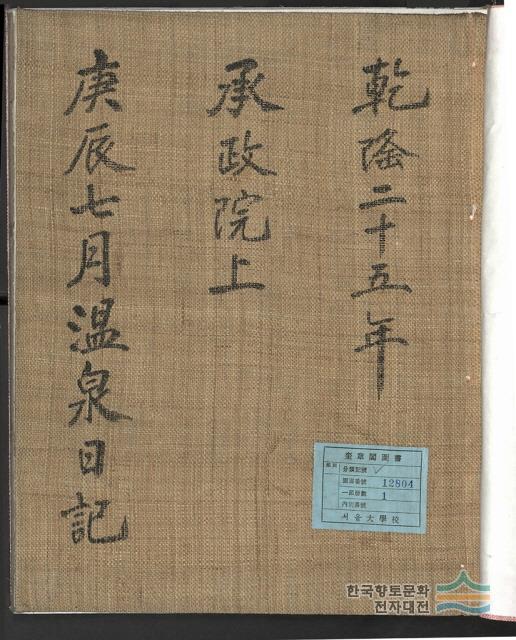 乾隆二十五年
承政院上
庚辰七月温泉日記
奎章閣圖書
分類記號
圖書番號 12804
一部冊數 1
內別番號
서울大學校
한국향토문화
전자대전